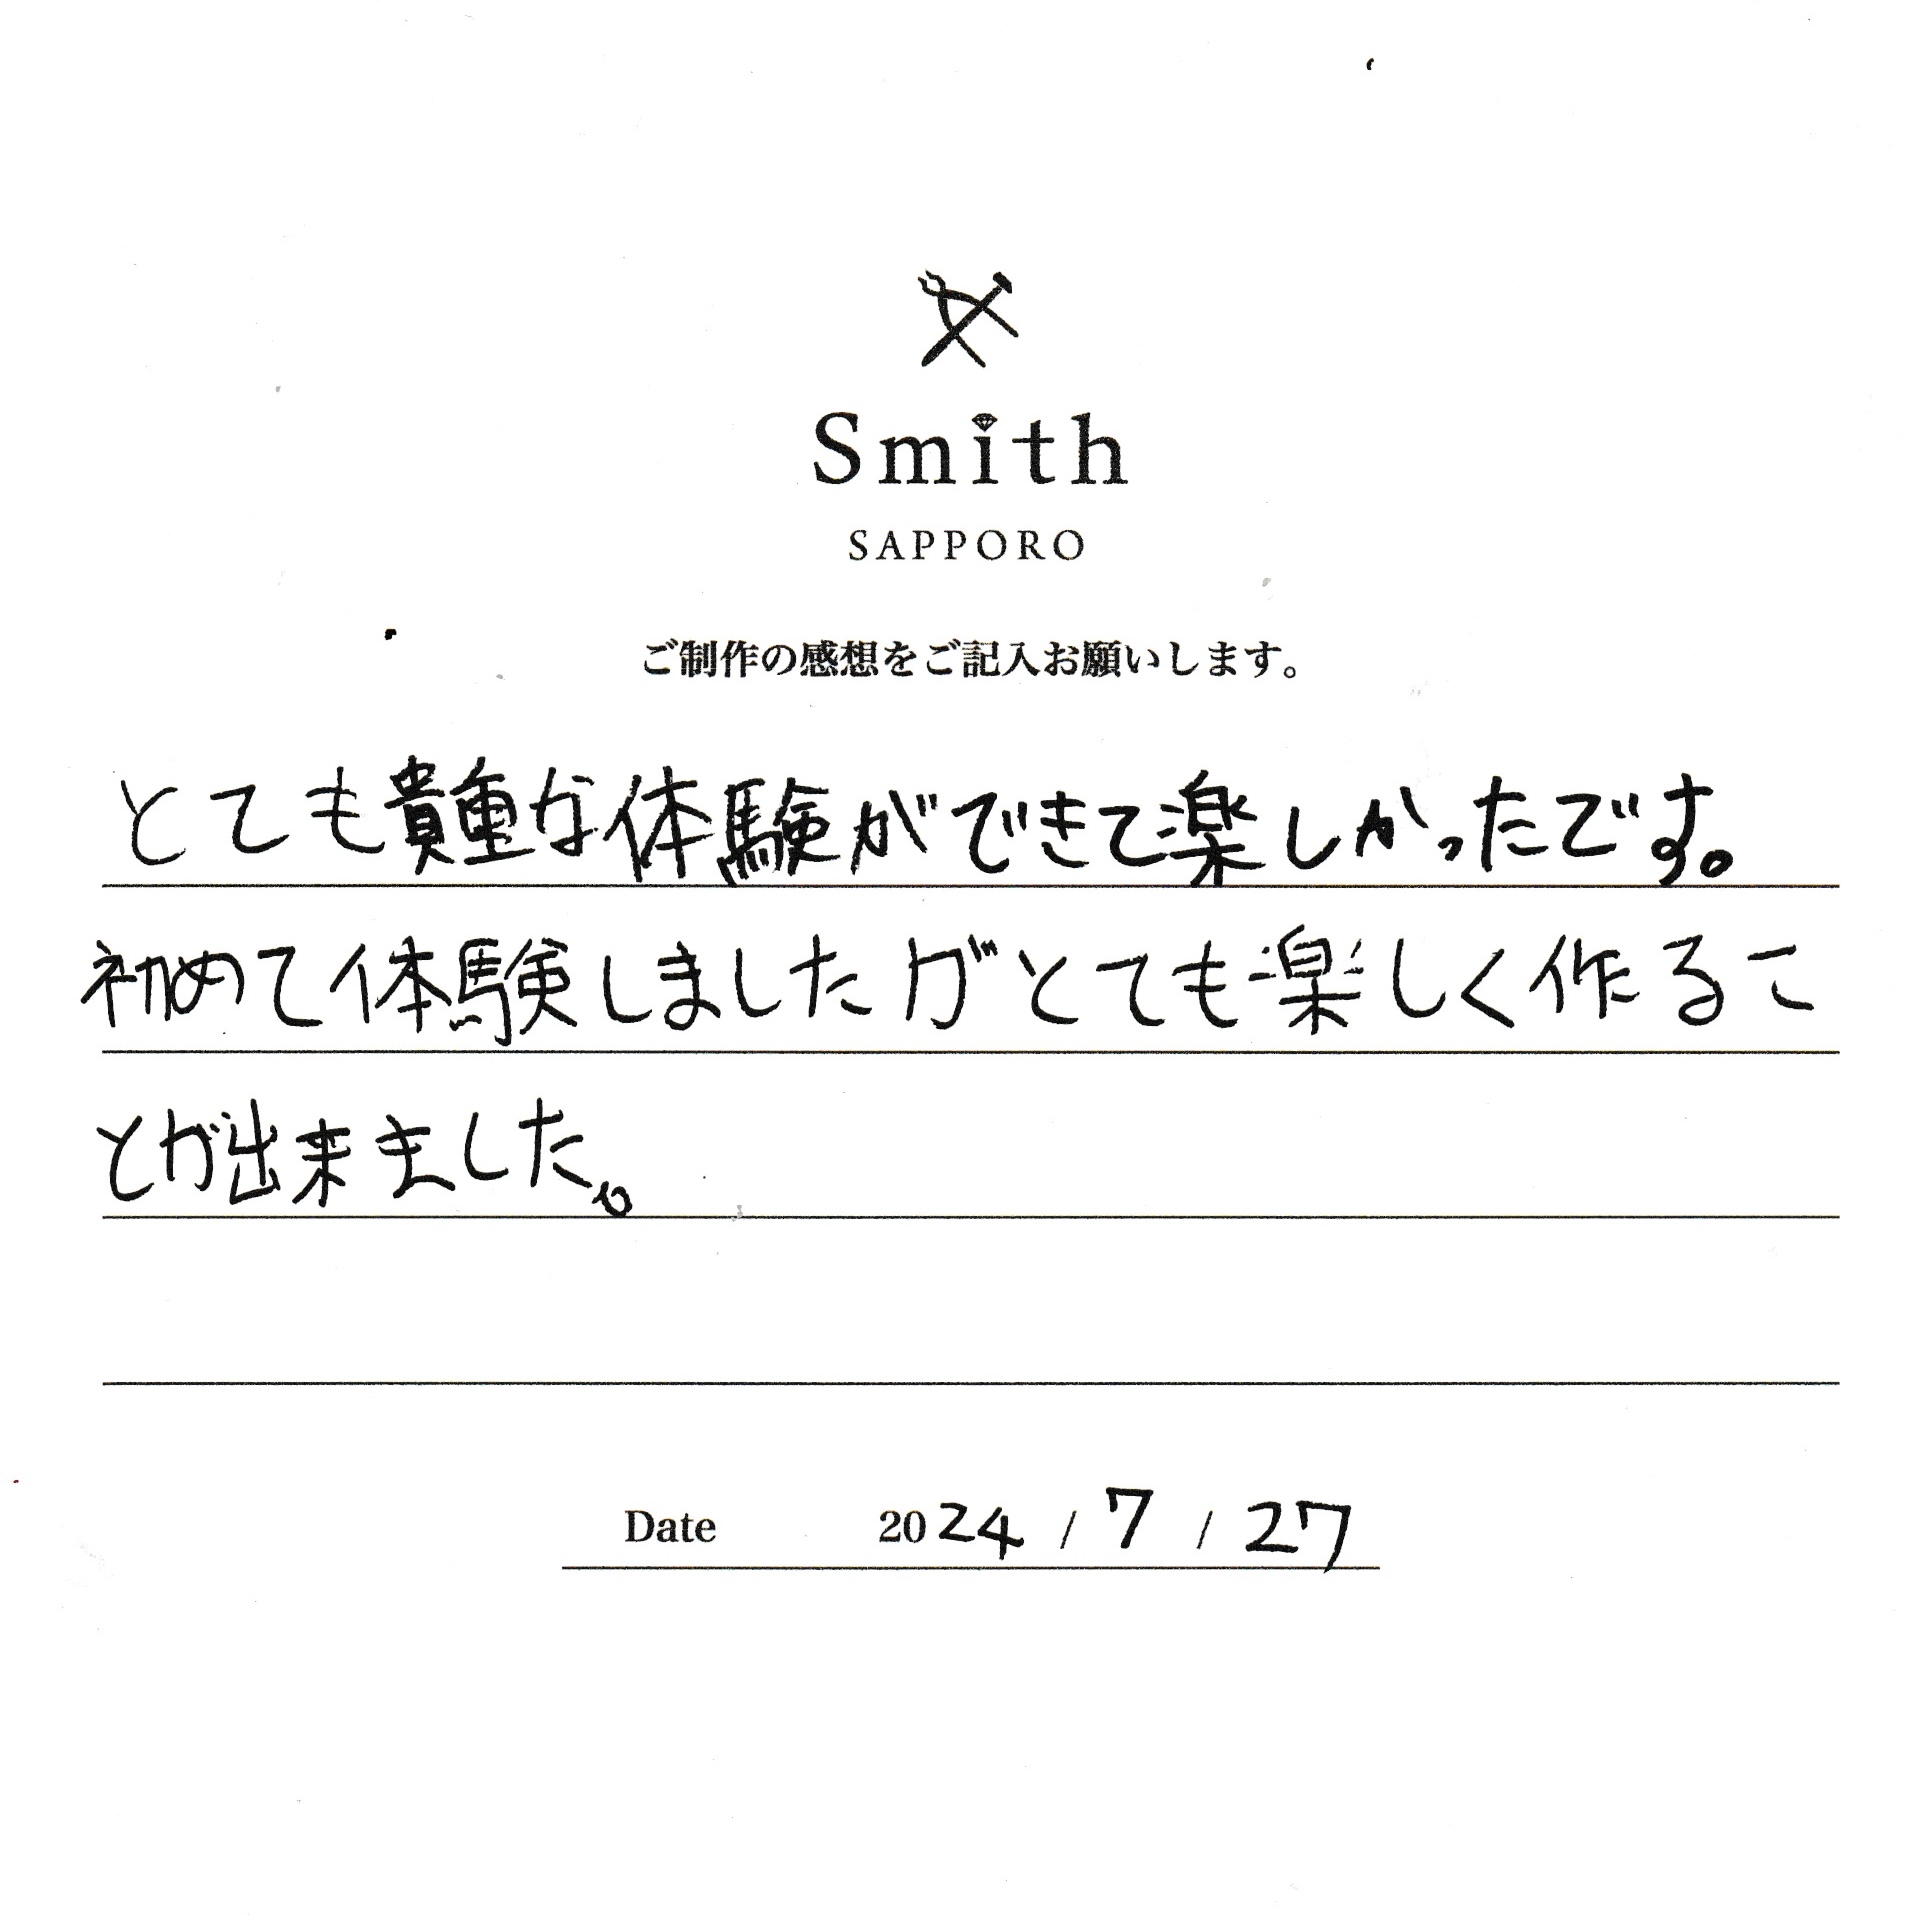 Smith
SAPPORO
ご制作の感想をご記入お願いします。
とても貴重な体験ができて楽しかったです。
初めて体験しましたがとても楽しく作るこ
とが出来ました。
Date 2024 / 7 / 27